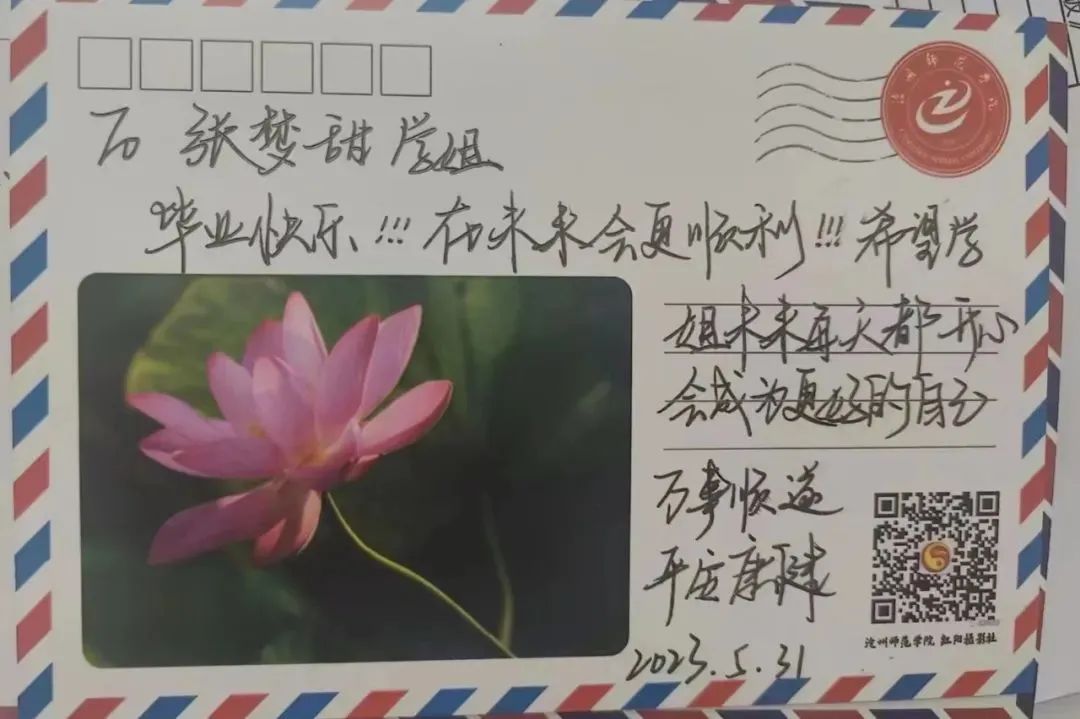 张梦甜学姐
毕业快乐!!!在未来会更顺利!!!希望学
姐未来每天都开心
会成为更好的自己
万事顺遂
平安康健
2023.5.31
沧州师范学院
沧州师范学院 红阳摄影社